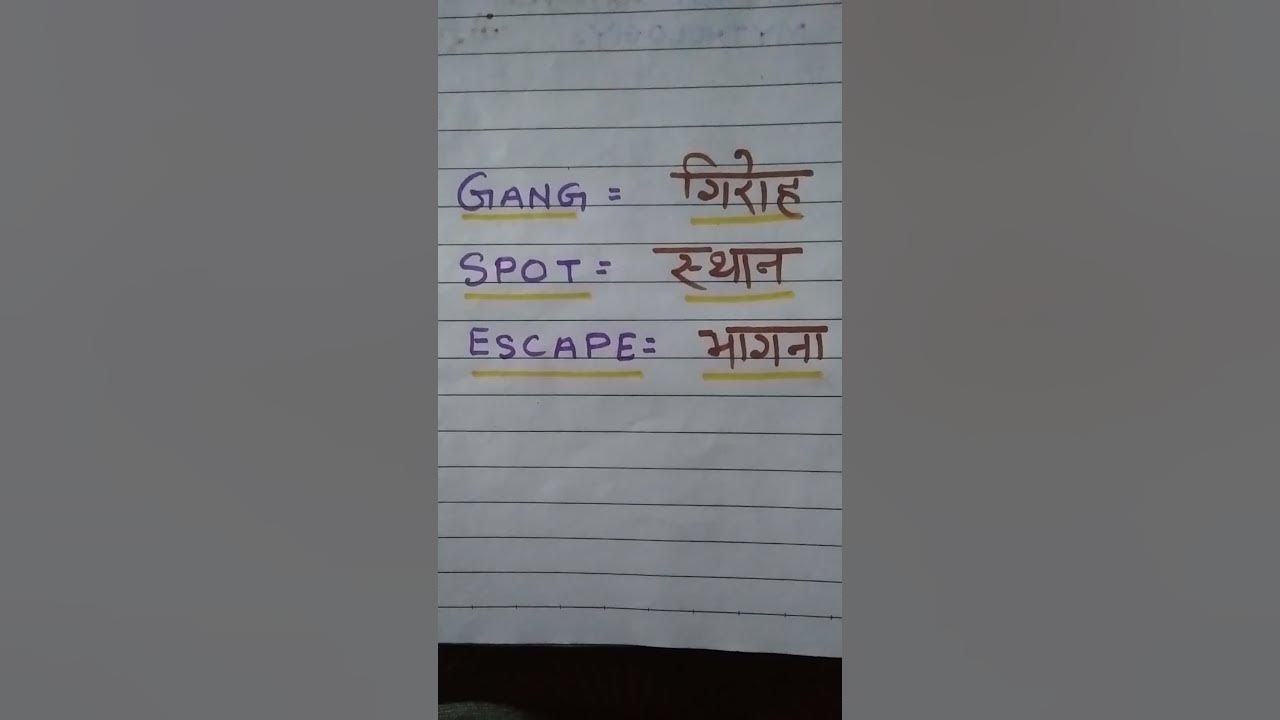 GANG = गिरोह
SPOT = स्थान
ESCAPE = भागना